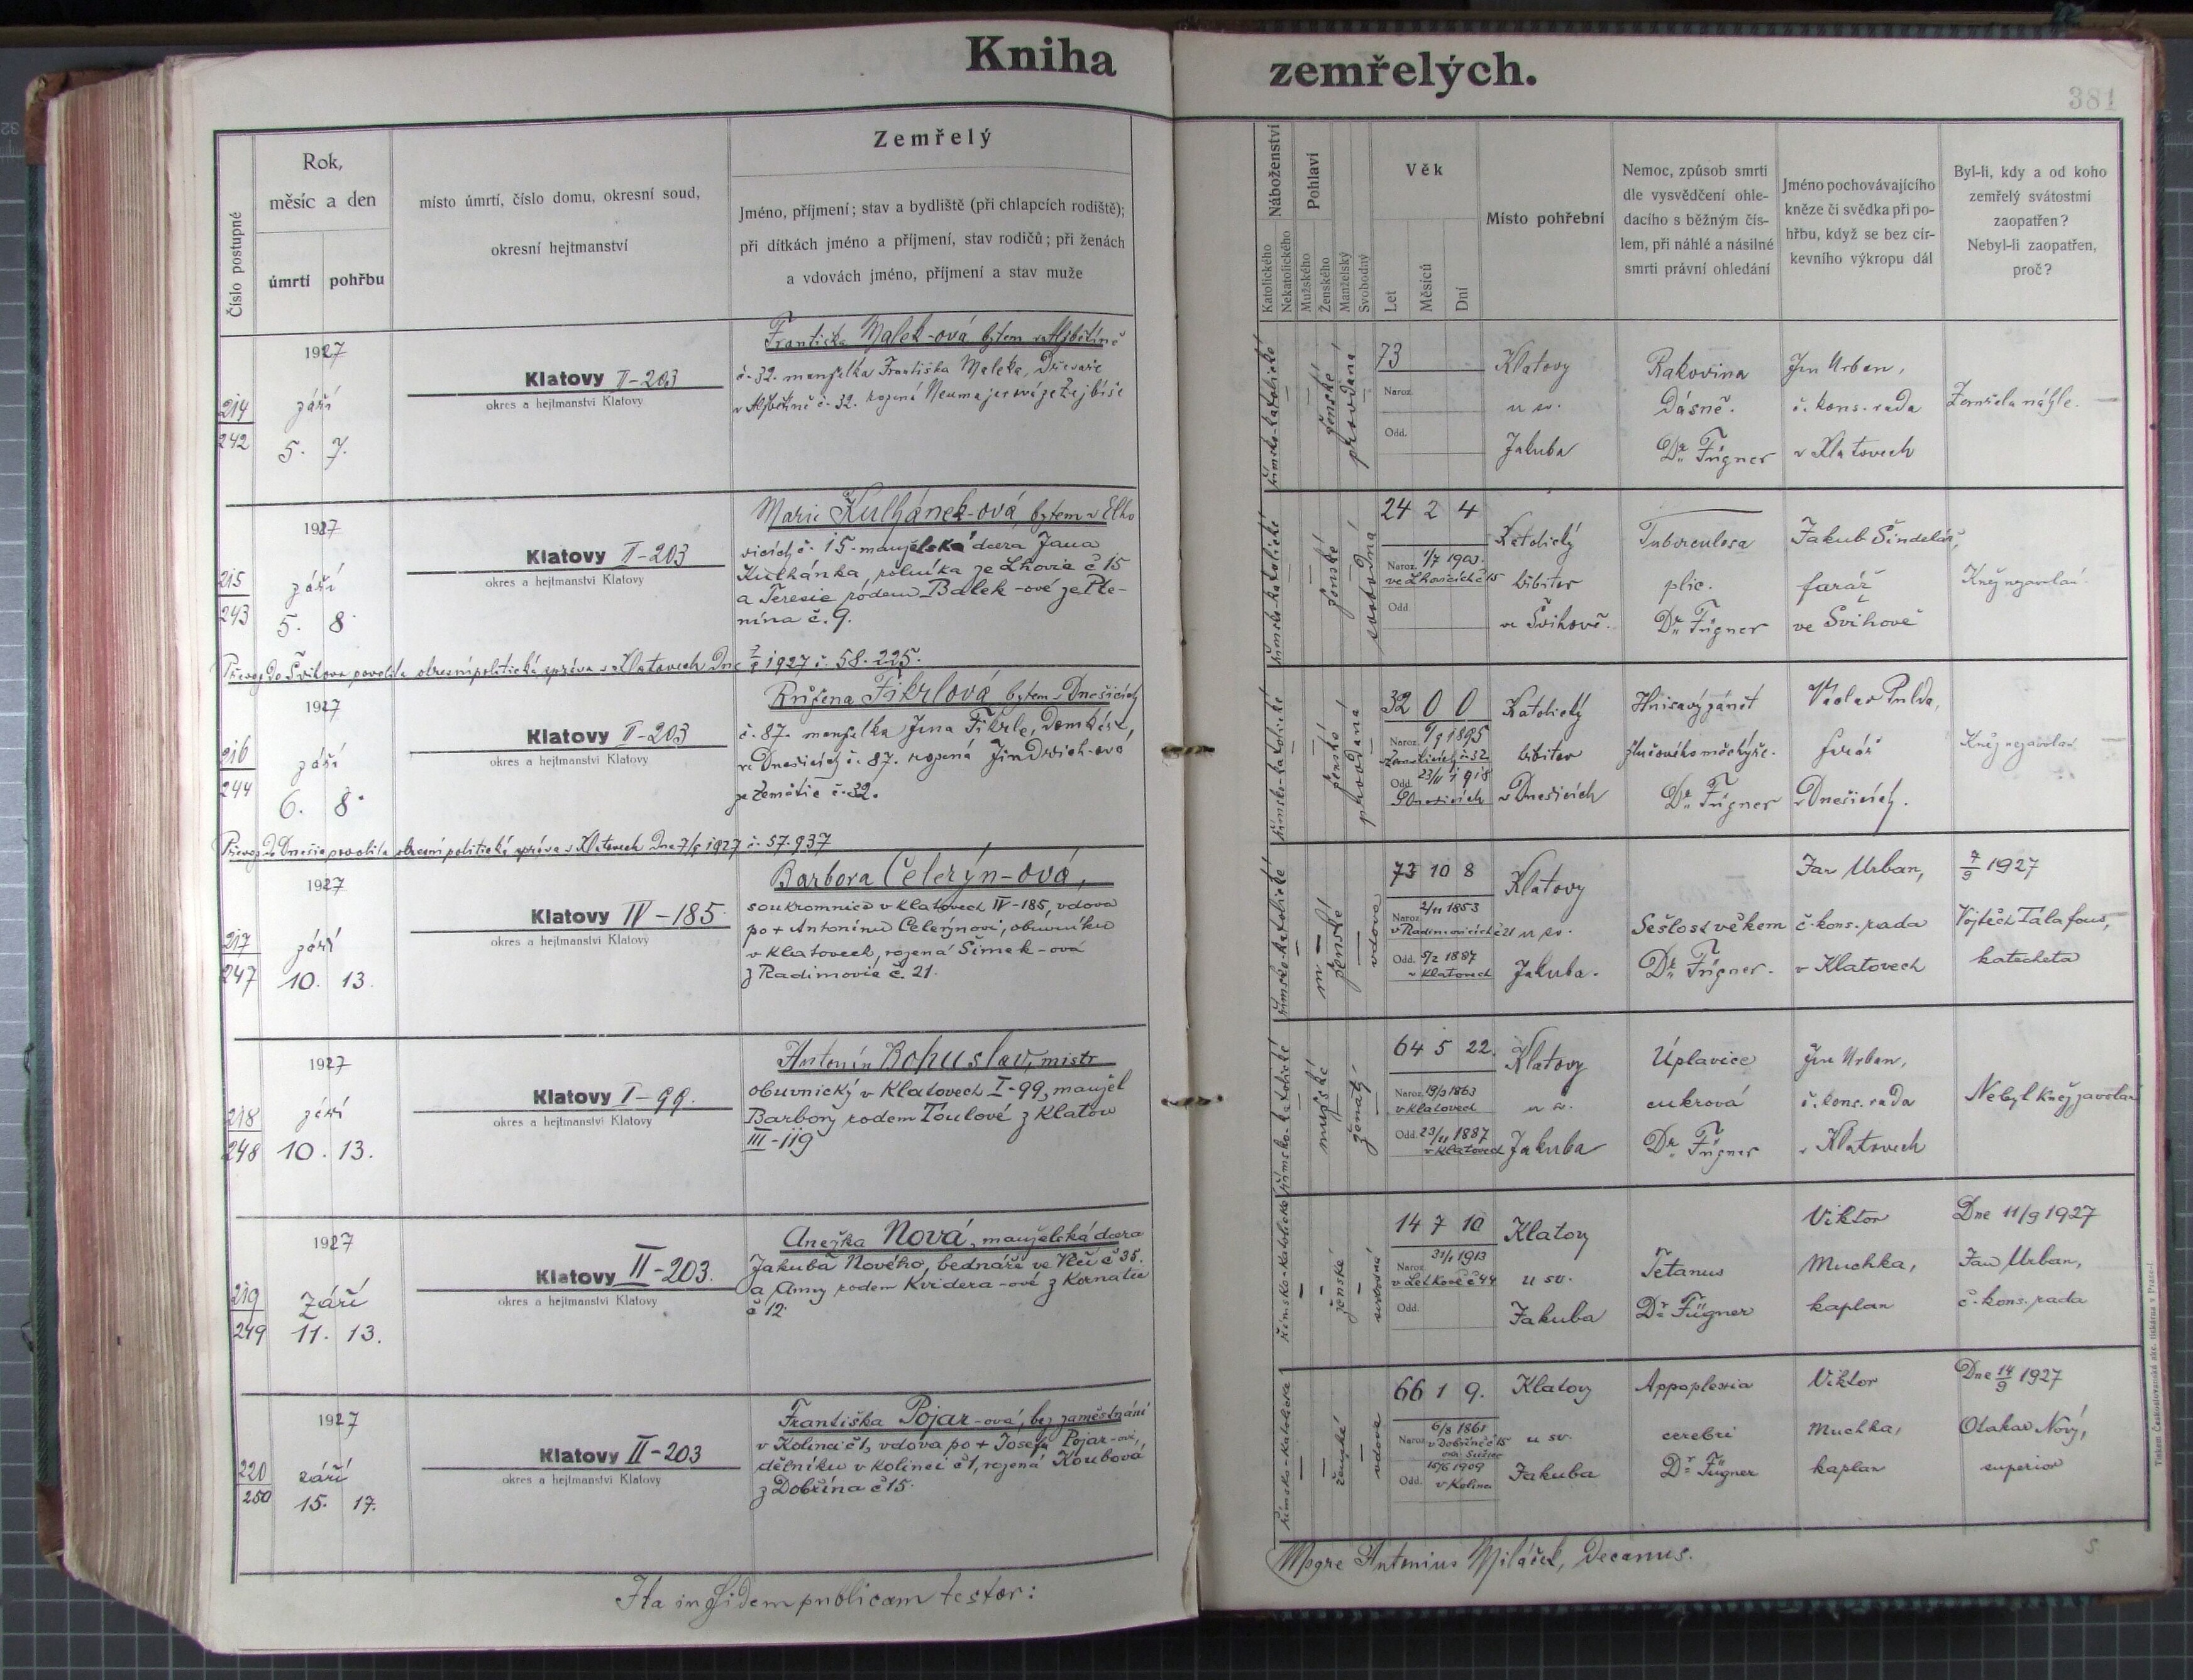 Kniha zemřelých.
381
Číslo postupné
Rok,
měsíc a den
úmrtí
pohřbu
místo úmrtí, číslo domu, okresní soud,
okresní hejtmanství
Zemřelý
Jméno, příjmení; stav a bydliště (při chlapcích rodiště);
při dítkách jméno a příjmení, stav rodičů; při ženách
a vdovách jméno, příjmení a stav muže
Náboženství
Katolického
Nekatolického
Pohlaví
Mužského
Ženského
Manželský
Svobodný
Věk
Let
Měsíců
Dní
Místo pohřební
Nemoc, způsob smrti
dle vysvědčení ohle-
dacího s běžným čís-
lem, při náhlé a násilné
smrti právní ohledání
Jméno pochovávajícího
kněze či svědka při po-
hřbu, když se bez cír-
kevního výkropu dál
Byl-li, kdy a od koho
zemřelý svátostmi
zaopatřen?
Nebyl-li zaopatřen,
proč?
214
242
1927
září
5. 7.
Klatovy II-203
okres a hejtmanství Klatovy
Františka Malek-ová, bytem v Alžbětíně
č. 32. manželka Františka Maleka,
v Alžbětíně č. 32. rozená Neumajerová ze Zejbiše
římsko-katolické
ženské
provdaná
73
Naroz.
Odd.
Klatovy
u sv.
Jakuba
Rakovina
dásně.
Dr. Fügner
Jan Urban,
č. kons. rada
v Klatovech
Zemřela náhle.
215
243
1927
září
5. 8.
Klatovy II-203
okres a hejtmanství Klatovy
Marie Kulhánek-ová, bytem v Elho
vicích č. 15. manželská dcera Jana
Kulhánka, rolníka ze Lhovic č 15
a Terezie rodem Balek-ové ze Ple-
nína č. 9.
Převoz do Švihova povolila okresní politická správa v Klatovech dne 7/9 1927 č. 58.225.
římsko-katolické
ženské
svobodná
24 2 4
Naroz. 1/7 1903.
ve Lhovicích č 15
Odd.
Katolický
hřbitov
ve Švihově.
Tuberculosa
plic.
Dr. Fügner
Jakub Šindelář,
farář
ve Švihově
Kněz nezavolán.
216
244
1927
září
6. 8.
Klatovy II-203
okres a hejtmanství Klatovy
Růžena Fikrlová bytem v Dnešicích
č. 87. manželka Jana Fikrle, domkáře,
v Dnešicích č. 87. rozená Jindřich-ová
ze Zemětic č. 32.
Převoz do Dnešic povolila okresní politická správa v Klatovech dne 7/9 1927 č. 57.937
římsko-katolické
ženské
provdaná
32 0 0
Naroz. 6/9 1895
Odd. 23/11 1918
v Dnešicích
Katolický
hřbitov
v Dnešicích
Hnisavý zánět
žlučového měchýře.
Dr. Fügner
Václav Pulda,
farář
v Dnešicích.
Kněz nezavolán
217
247
1927
září
10. 13.
Klatovy IV-185.
okres a hejtmanství Klatovy
Barbora Čelerýn-ová,
soukromnice v Klatovech IV-185, vdova
po + Antonínu Čelerýnovi, obuvníku
v Klatovech, rozená Šimek-ová
z Radimovic č. 21.
římsko-katolické
ženské
vdova
73 10 8
Naroz. 2/11 1853
v Radimovicích č 21
Odd. 8/2 1887
v Klatovech
Klatovy
u sv.
Jakuba.
Sešlost věkem
Dr. Fügner.
Jan Urban,
č. kons. rada
v Klatovech
7/9 1927
Vojtěch Tálafous,
katecheta
218
248
1927
září
10. 13.
Klatovy I-99.
okres a hejtmanství Klatovy
Antonín Bohuslav, mistr
obuvnický v Klatovech I-99, manžel
Barbory rodem Toulové z Klatov
III-119
římsko-katolické
mužské
ženatý
64 5 22.
Naroz. 19/3 1863
v Klatovech
Odd. 23/11 1887
v Klatovech
Klatovy
u sv.
Jakuba
Úplavice
cukrová
Dr. Fügner
Jan Urban,
č. kons. rada
v Klatovech
Nebyl kněz zavolán
219
249
1927
Září
11. 13.
Klatovy II-203.
okres a hejtmanství Klatovy
Anežka Nová, manželská dcera
Jakuba Nového, bednáře ve Vlčí č 35.
a Anny rodem Kvidera-ové z Kornatic
č 12.
římsko-katolické
ženské
svobodná
14 7 10
Naroz. 31/1 1913
v Letkově č 44
Odd.
Klatovy
u sv.
Jakuba
Tetanus
Dr. Fügner
Viktor
Muchka,
kaplan
Dne 11/9 1927
Jan Urban,
č. kons. rada
220
250
1927
září
15. 17.
Klatovy II-203
okres a hejtmanství Klatovy
Františka Pojar-ová, bez zaměstnání
v Kolinci č 1, vdova po + Josefu Pojar-ovi,
dělníku v Kolinci č 1, rozená Koubová
z Dobřína č 15.
římsko-katolické
ženské
vdova
66 1 9.
Naroz. 6/8 1861
v Dobříně č 15
okr. Sušice
Odd. 15/6 1909
v Kolinci
Klatovy
u sv.
Jakuba
Appoplexia
cerebri
Dr. Fügner
Viktor
Muchka,
kaplan
Dne 14/9 1927
Otakar Nový,
superior
Ita in fidem publicam testor:
Msgre Antonius Miláček, Decanus.
Tiskem Českoslovanské akc. tiskárna v Praze-I